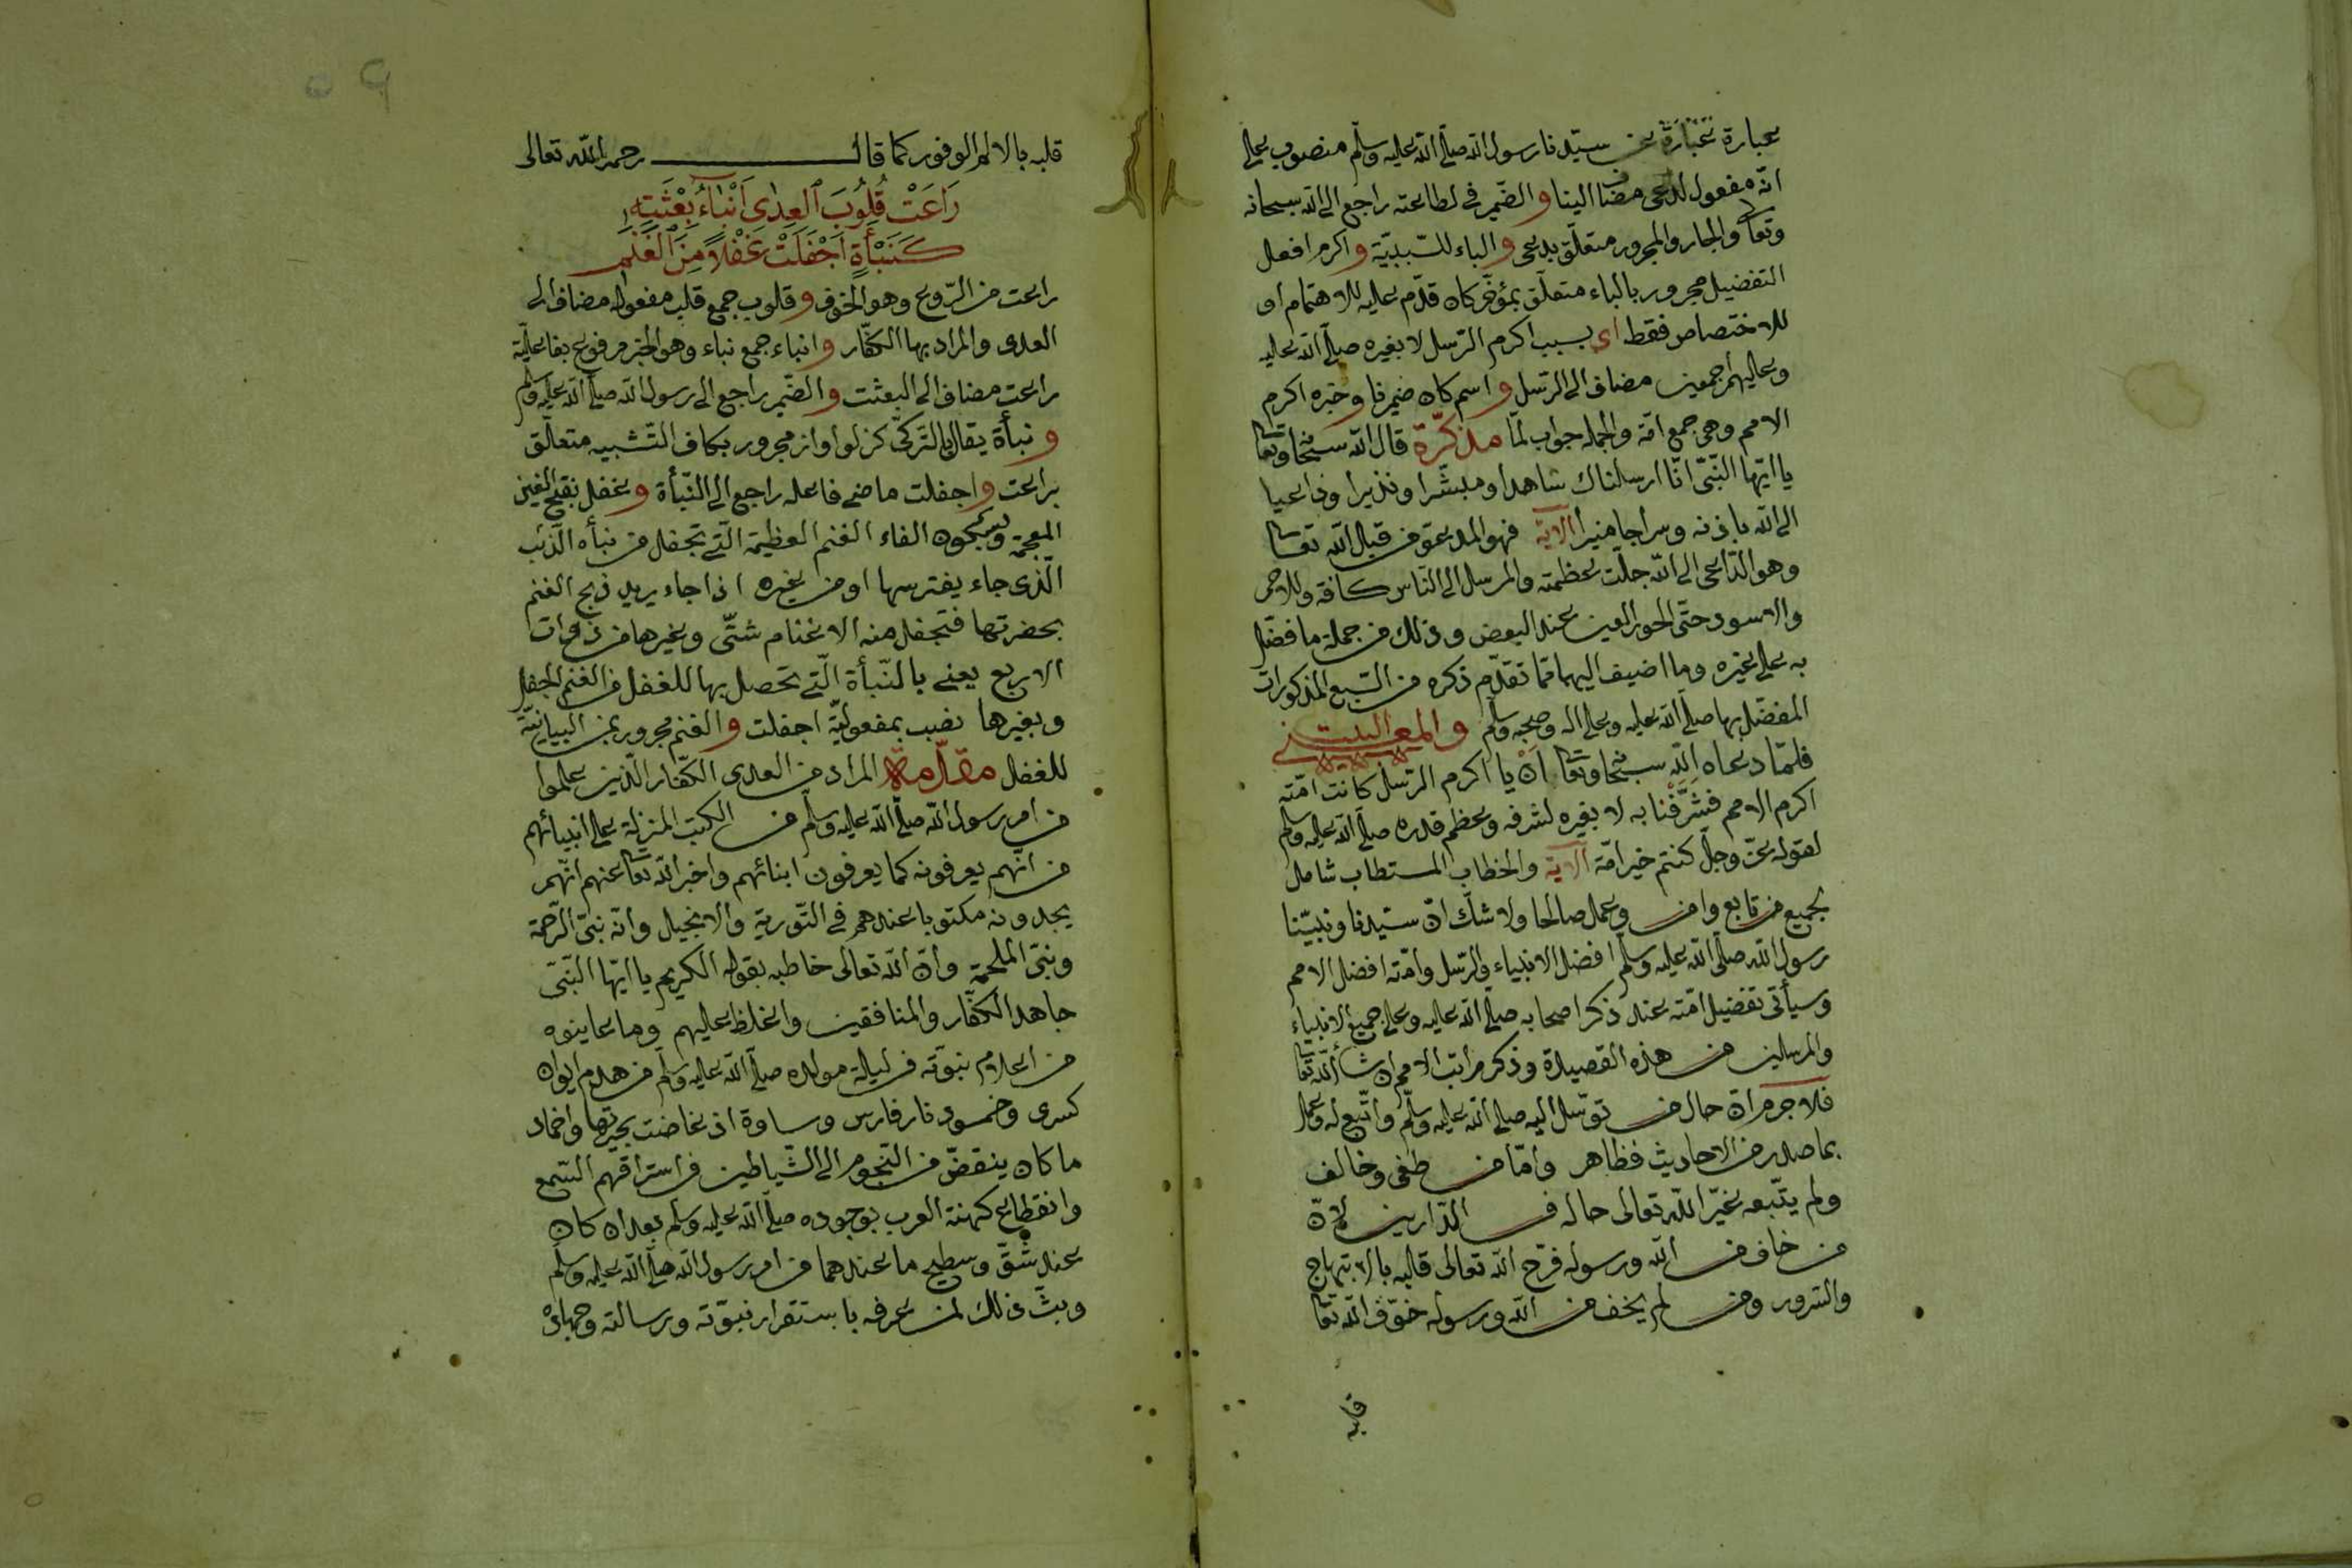 عبارة عبارة عن سيّدنا رسول الله صلّى الله عليه وسلّم منصوب على
انّه مفعول لدعى مضاف الينا والضّمير فى لطاعته راجع الى الله سبحانه
وتعالى والجار والمجرور متعلّق بدعى والباء للسّببيّة واكرم افعل
التفضيل مجرور بالباء متعلّق بمؤخّر كان قدّم عليه للاهتمام او
للاختصاص فقط اى بسبب اكرم الرّسل لا بغيره صلّى الله عليه
وعليهم اجمعين مضاف الى الرّسل واسم كان ضمير نا وخبره اكرم
الامم وهى جمع امّة والجملة جواب لمّا مذكّرة قال الله سبحانه وتعالى
يا ايّها النّبىّ انّا ارسلناك شاهدا ومبشّرا ونذيرا وداعيا
الى الله باذنه وسراجا منيرا الآية فهو المدعوّ من قبل الله تعالى
وهو الدّاعى الى الله جلّت عظمته والمرسل الى النّاس كافة وللاحمر
والاسود حتّى الحور العين عند البعض وذلك من جملة ما فضّل
به على غيره وما اضيف اليهما ممّا تقدّم ذكره من السّبع المذكورات
المفضّل بها صلّى الله عليه وعلى اله وصحبه وسلّم والمعنى البيت
فلمّا دعاه الله سبحانه وتعالى اَنْ يا اكرم الرّسل كانت امّته
اكرم الامم فشَرَّفَنا به لا بغيره لشرفه وعظم قدره صلّى الله عليه وسلّم
لقوله عزّ وجلّ كنتم خير امّة الآية والخطاب المستطاب شامل
لجميع من تابع وامن وعمل صالحا ولا شكّ انّ سيّدنا ونبيّنا
رسول الله صلّى الله عليه وسلّم افضل الانبياء والرّسل وامّته افضل الامم
وسيأتى تفضيل امّته عند ذكر اصحابه صلّى الله عليه وعلى جميع الانبياء
والمرسلين من هذه القصيدة وذكر مراتب الامم ان شاء الله تعالى
فلا جرم انّ حال من توسّل اليه صلى الله عليه وسلّم واتّبع له وعمل
بما صدر من الاحاديث فظاهر وامّا من طغى وخالف
ولم يتّبعه غيّر الله تعالى حاله فى الدّارين لانّ
من خاف من الله ورسوله فرّح الله تعالى قلبه بالابتهاج
والسّرور ومن لم يخف من الله ورسوله خوّف الله تعالى
قلبه
قلبه بالالم الوفور كما قال رحمه الله تعالى
رَاعَتْ قُلُوبَ الْعِدٰى اَنْبَاءُ بِعْثَتِهِ
كَنَبْأَةٍ اَجْفَلَتْ غُفْلاً مِنَ الْغَنَمِ
راعت من الرّوع وهو الخوف وقلوب جمع قلب مفعوله مضاف الى
العدى والمراد بها الكفّار وانباء جمع نباء وهو الخبر مرفوع بفاعليّة
راعت مضاف الى البعثت والضّمير راجع الى رسول الله صلّى الله عليه وسلّم
ونبأة يقال بالتّركىّ كزلو اواز مجرور بكاف التّشبيه متعلّق
براعت واجفلت ماضى فاعله راجع الى النّبأة وغفل بفتح الغين
المعجمة وبسكون الفاء الغنم العظيمة الّتى تجفل من نبأه الذّئب
الّذى جاء يفترسها او من غيره اذا جاء يريد ذبح الغنم
بحضرتها فتجفل منه الاغنام شتّى وغيرها من ذوات
الاربع يعنى بالنّبأة الّتى تحصل بها للغفل من الغنم الجفل
وبغيرها نصب بمفعوليّة اجفلت والغنم مجرور بمن البيانيّة
للغفل مقدّمة المراد من العدى الكفّار الّذين علموا
من امر رسول الله صلّى الله عليه وسلّم من الكتب المنزلة على انبيائهم
من انّهم يعرفونه كما يعرفون ابنائهم واخبر الله تعالى عنهم انّهم
يجدونه مكتوبا عندهم فى التّورية والانجيل وانّه نبىّ الرّحمة
ونبىّ الملحمة وانّ الله تعالى خاطبه بقوله الكريم يا ايّها النّبىّ
جاهد الكفّار والمنافقين واغلظ عليهم وما عاينوه
من اعلام نبوّته فى ليلة مولده صلّى الله عليه وسلّم من هدم ايوان
كسرى وخمود نار فارس وساوة اذ غاضت بحيرتها واخماد
ما كان ينقضّ من النّجوم الى الشّياطين فى استراقهم السّمع
وانقطاع كهنة العرب بوجوده صلّى الله عليه وسلّم بعد ان كان
عند شقّ وسطيح ما عندهما من امر رسول الله صلّى الله عليه وسلّم
وبثّ ذلك لمن عرفه باستقرار نبوّته ورسالته وجهاده